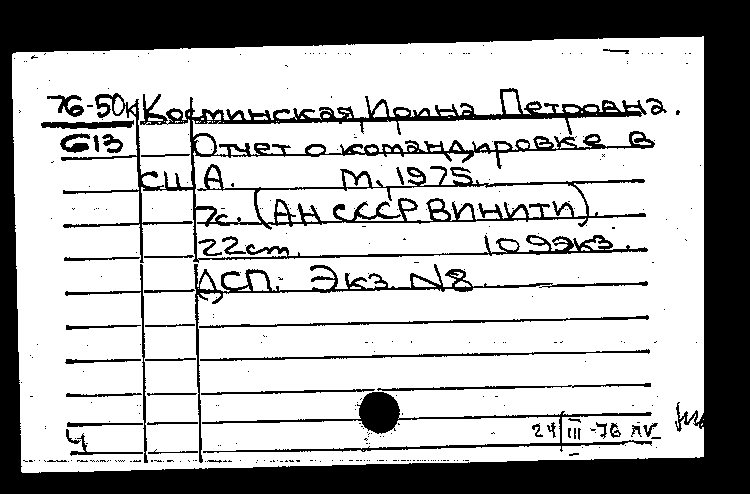 76-50к Косминская, Ирина Петровна.
613 Отчет о командировке в
США. М., 1975.
7с. (АН СССР. ВИНИТИ).
22см. 109экз.
ДСП. Экз. №8
Ч 24/III-76